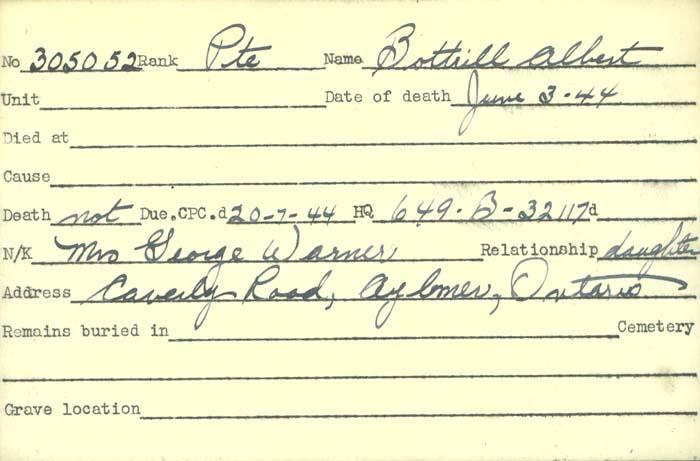 No 305052 Rank Pte Name Bottrill Albert
Unit Date of death June 3-44
Died at
Cause
Death not Due.CPC.d 20-7-44 HQ 649-B-32117 d
N/K Mrs George Warner Relationship daughter
Address Caverly Road, Aylmer, Ontario
Remains buried in Cemetery
Grave location